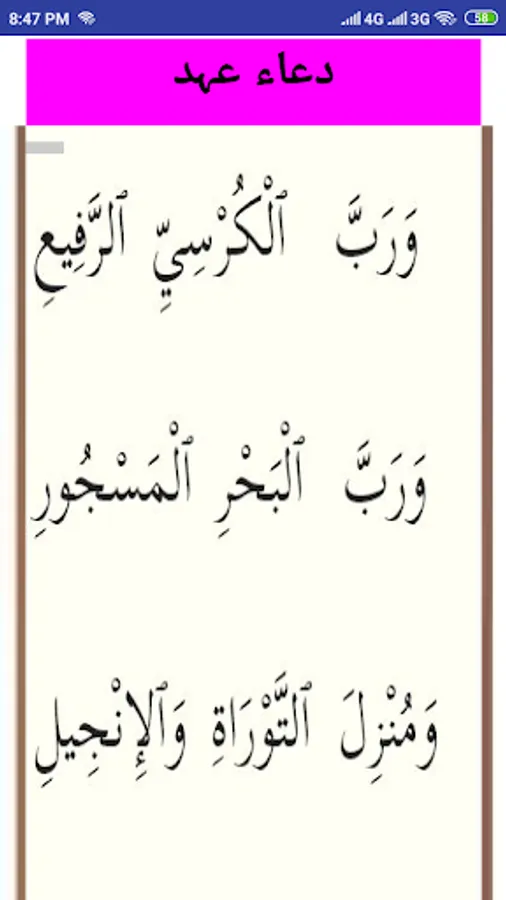 8:47 PM 4G 3G 58
دعاء عهد
وَرَبَّ ٱلْكُرْسِيِّ ٱلرَّفِيعِ
وَرَبَّ ٱلْبَحْرِ ٱلْمَسْجُورِ
وَمُنْزِلَ ٱلتَّوْرَاةِ وَٱلإِنْجِيلِ